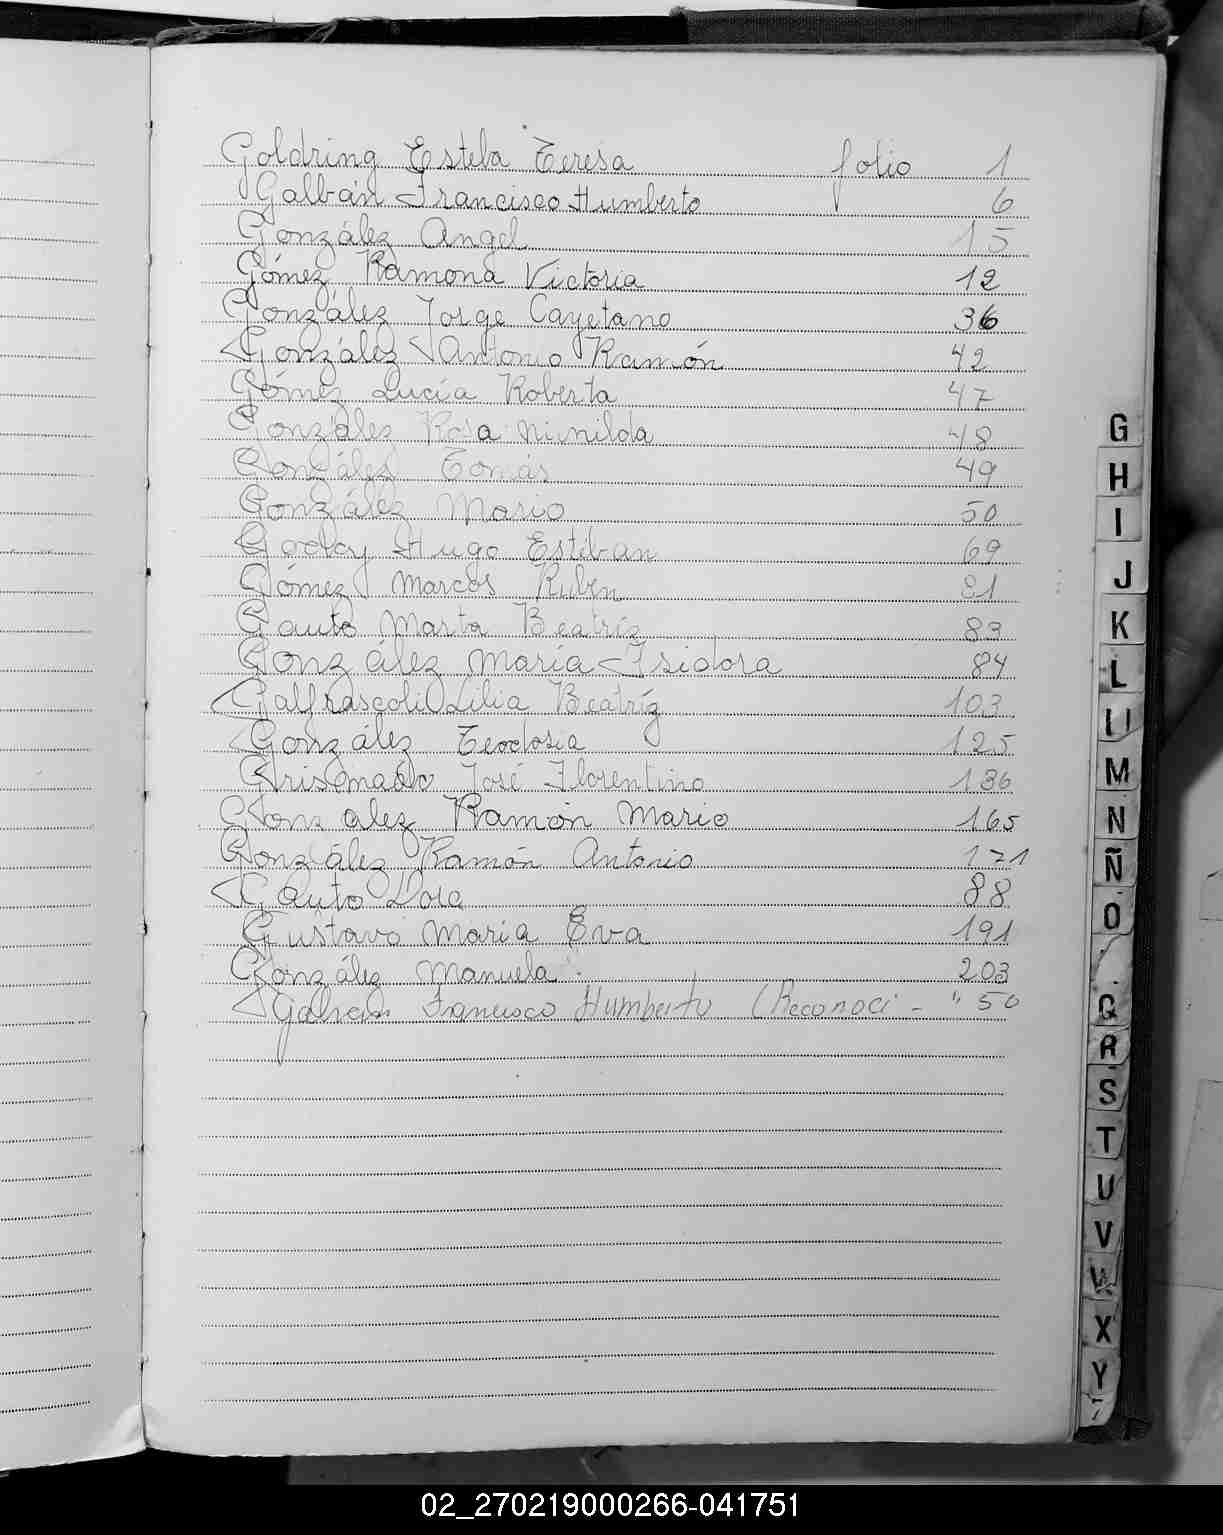 Goldring Estela Teresa folio 1
Galbán Francisco Humberto 6
González Angel 15
Gómez Ramona Victoria 12
González Jorge Cayetano 36
González Antonio Ramón 42
Gómez Lucía Roberta 47
González Rosa 48
González Tomás 49
González Mario 50
Godoy Hugo Esteban 69
Gómez Marcos Ruben 81
Gauto Marta Beatríz 83
González María Isidora 84
Galfrascoli Lilia Beatríz 103
González Teodosia 125
Grismado José Florentino 136
González Ramón Mario 165
González Ramón Antonio 171
Gauto Lora 88
Gustavo María Eva 191
González Manuela 203
Galván Francisco Humberto (Reconoci - " 50
G
H
I
J
K
L
LL
M
N
Ñ
O
Q
R
S
T
U
V
W
X
Y
02_270219000266-041751